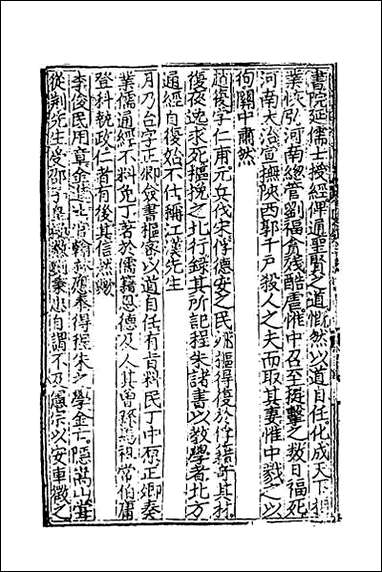 書院延儒士授經俾通聖賢之道慨然以道自任化成天下
業恢弘河南總管劉福貪殘酷虐惟中召至挺擊之数日福死
河南大治宣撫陝西郭千戶殺人之夫而取其妻惟中戮之以
徇關中肅然
趙復字仁甫元兵伐宋俘德安之民姚樞得復於俘籍奇其材
復夜逃求死樞挽之北行録其所記程朱諸書以教學者北方
通經自復始不仕稱江漢先生
月乃合字正卿僉書樞密以道自任有旨料民丁中原正卿奏
業儒通經不料免丁著於儒籍恩德及人其曾孫馬祖常伯庸
登科執政仁者有後其信然歟
李俊民用章金進士官翰林應奉得程朱之學金亡隱嵩山
從荆先生受邵子皇極自謂不及傳示以安車徴之